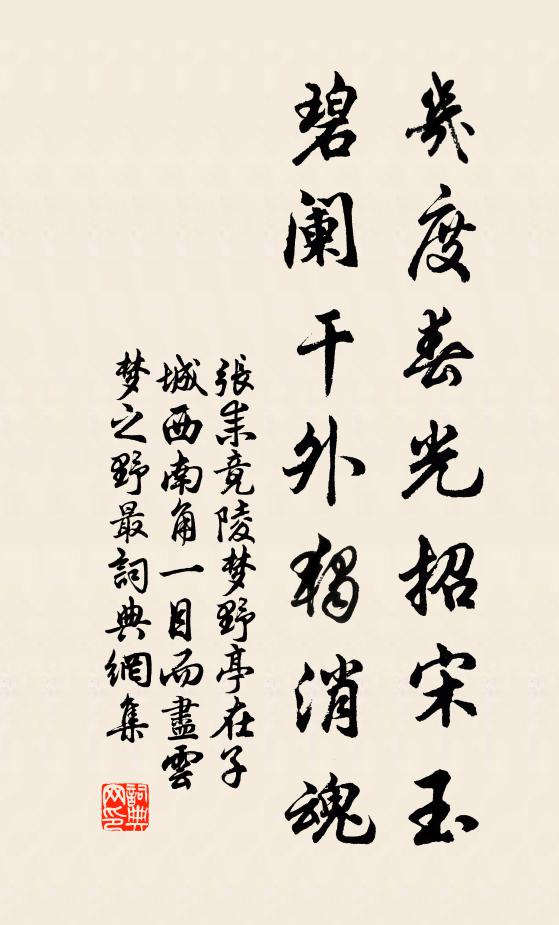 幾度春光招宋玉
碧阑干外獨消魂
張耒竟陵梦野亭在子
城西南角一目而盡雲
梦之野最詞典網集
詞典
网印